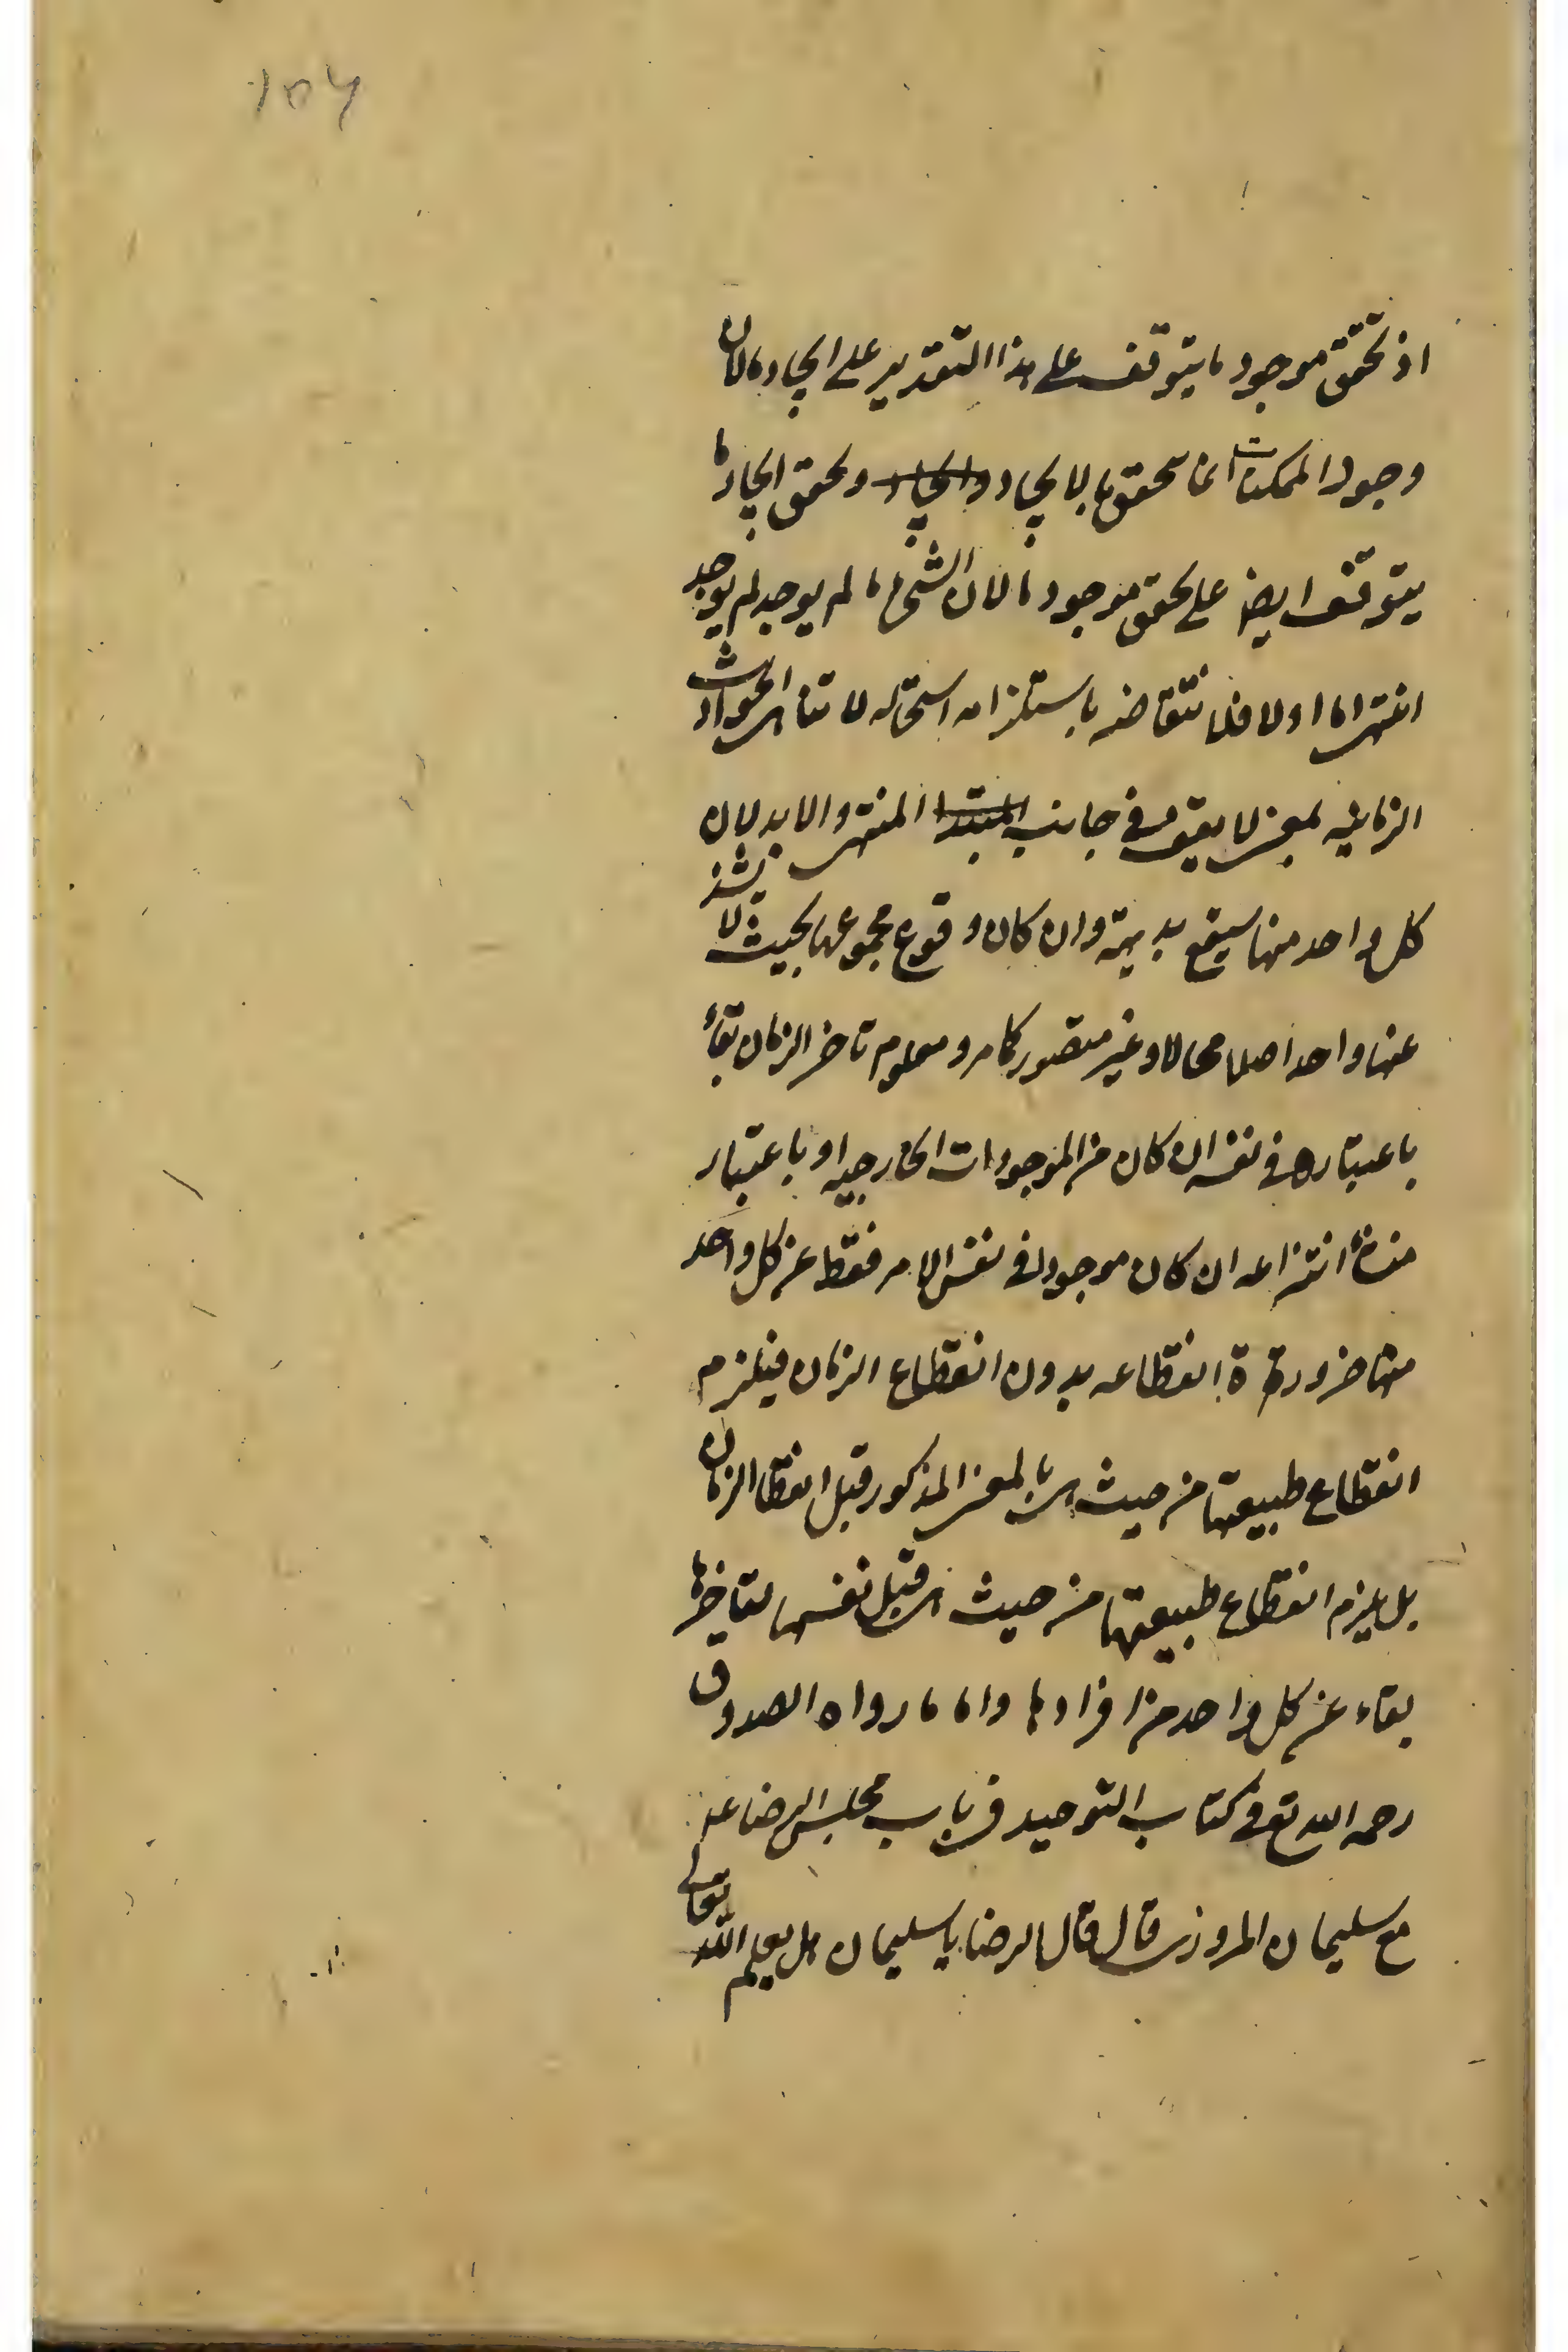 ۱۵۶
اذ تحقق موجود ما يتوقف على هذا التقدير على ايجاد ما لان
وجود الممكنات انما تحقق بالايجاد وايجاد وتحقق ايجاد ما
يتوقف ايضا على تحقق موجود ما لان الشئ ما لم يوجد لم يوجد
انتهى اما اولا فلانتقاضه باستلزامه استحاله لا تناهى الحوادث
الزمانيه بمعنى لا يقف فى جانب المبتدا المنتهى والابد لان
كل واحد منها سيقع بديهة وان كان وقوع مجموعها بحيث لا يشذ
عنها واحد اصلا محالا وغير متصور كما مر ومعلوم تاخر الزمان بقاء
باعتباره فى نفسه ان كان من الموجودات الخارجيه او باعتبار
منشأ انتزاعه ان كان موجودا فى نفس الامر فقط عن كل واحد
منها ضرورة انقطاعه بدون انقطاع الزمان فيلزم
انقطاع طبيعتها من حيث هى بالمعنى المذكور قبل انقطاع الزمان
بل يلزم انقطاع طبيعتها من حيث هى قبل نفسها لتاخرها
بقاء عن كل واحد من افرادها واما ما رواه الصدوق
رحمه الله تع فى كتاب التوحيد فى باب مجلس الرضا عد
مع سليمان المروزى قال قال الرضا يا سليمان هل يعلم الله تعالى